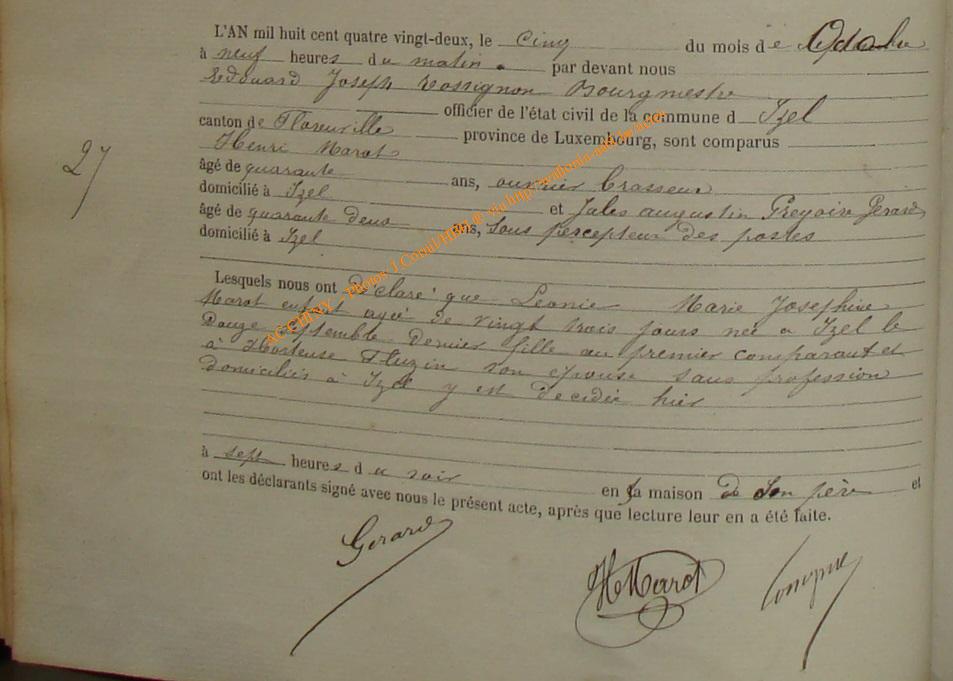 L'AN mil huit cent quatre vingt-deux, le cinq du mois de Octobre
à neuf heures du matin par devant nous
Edouard Joseph Rossignon Bourgmestre
officier de l'état civil de la commune d Izel
canton de Florenville province de Luxembourg, sont comparus
Henri Marot
27
âgé de quarante ans, ouvrier brasseur
domicilié à Izel et Jules augustin Gregoire Gerard
âgé de quarante deux ans, sous percepteur des postes
domicilié à Izel
Lesquels nous ont déclaré que Leonie Marie Josephine
Marot enfant agée de vingt trois jours née a Izel le
Douze septembre dernier fille au premier comparant et
à Hortense Fluzin son épouse sans profession
domiciliés à Izel y est decidée hier
à sept heures du soir en la maison de son père et
ont les déclarants signé avec nous le présent acte, après que lecture leur en a été faite.
Gerard
H Marot